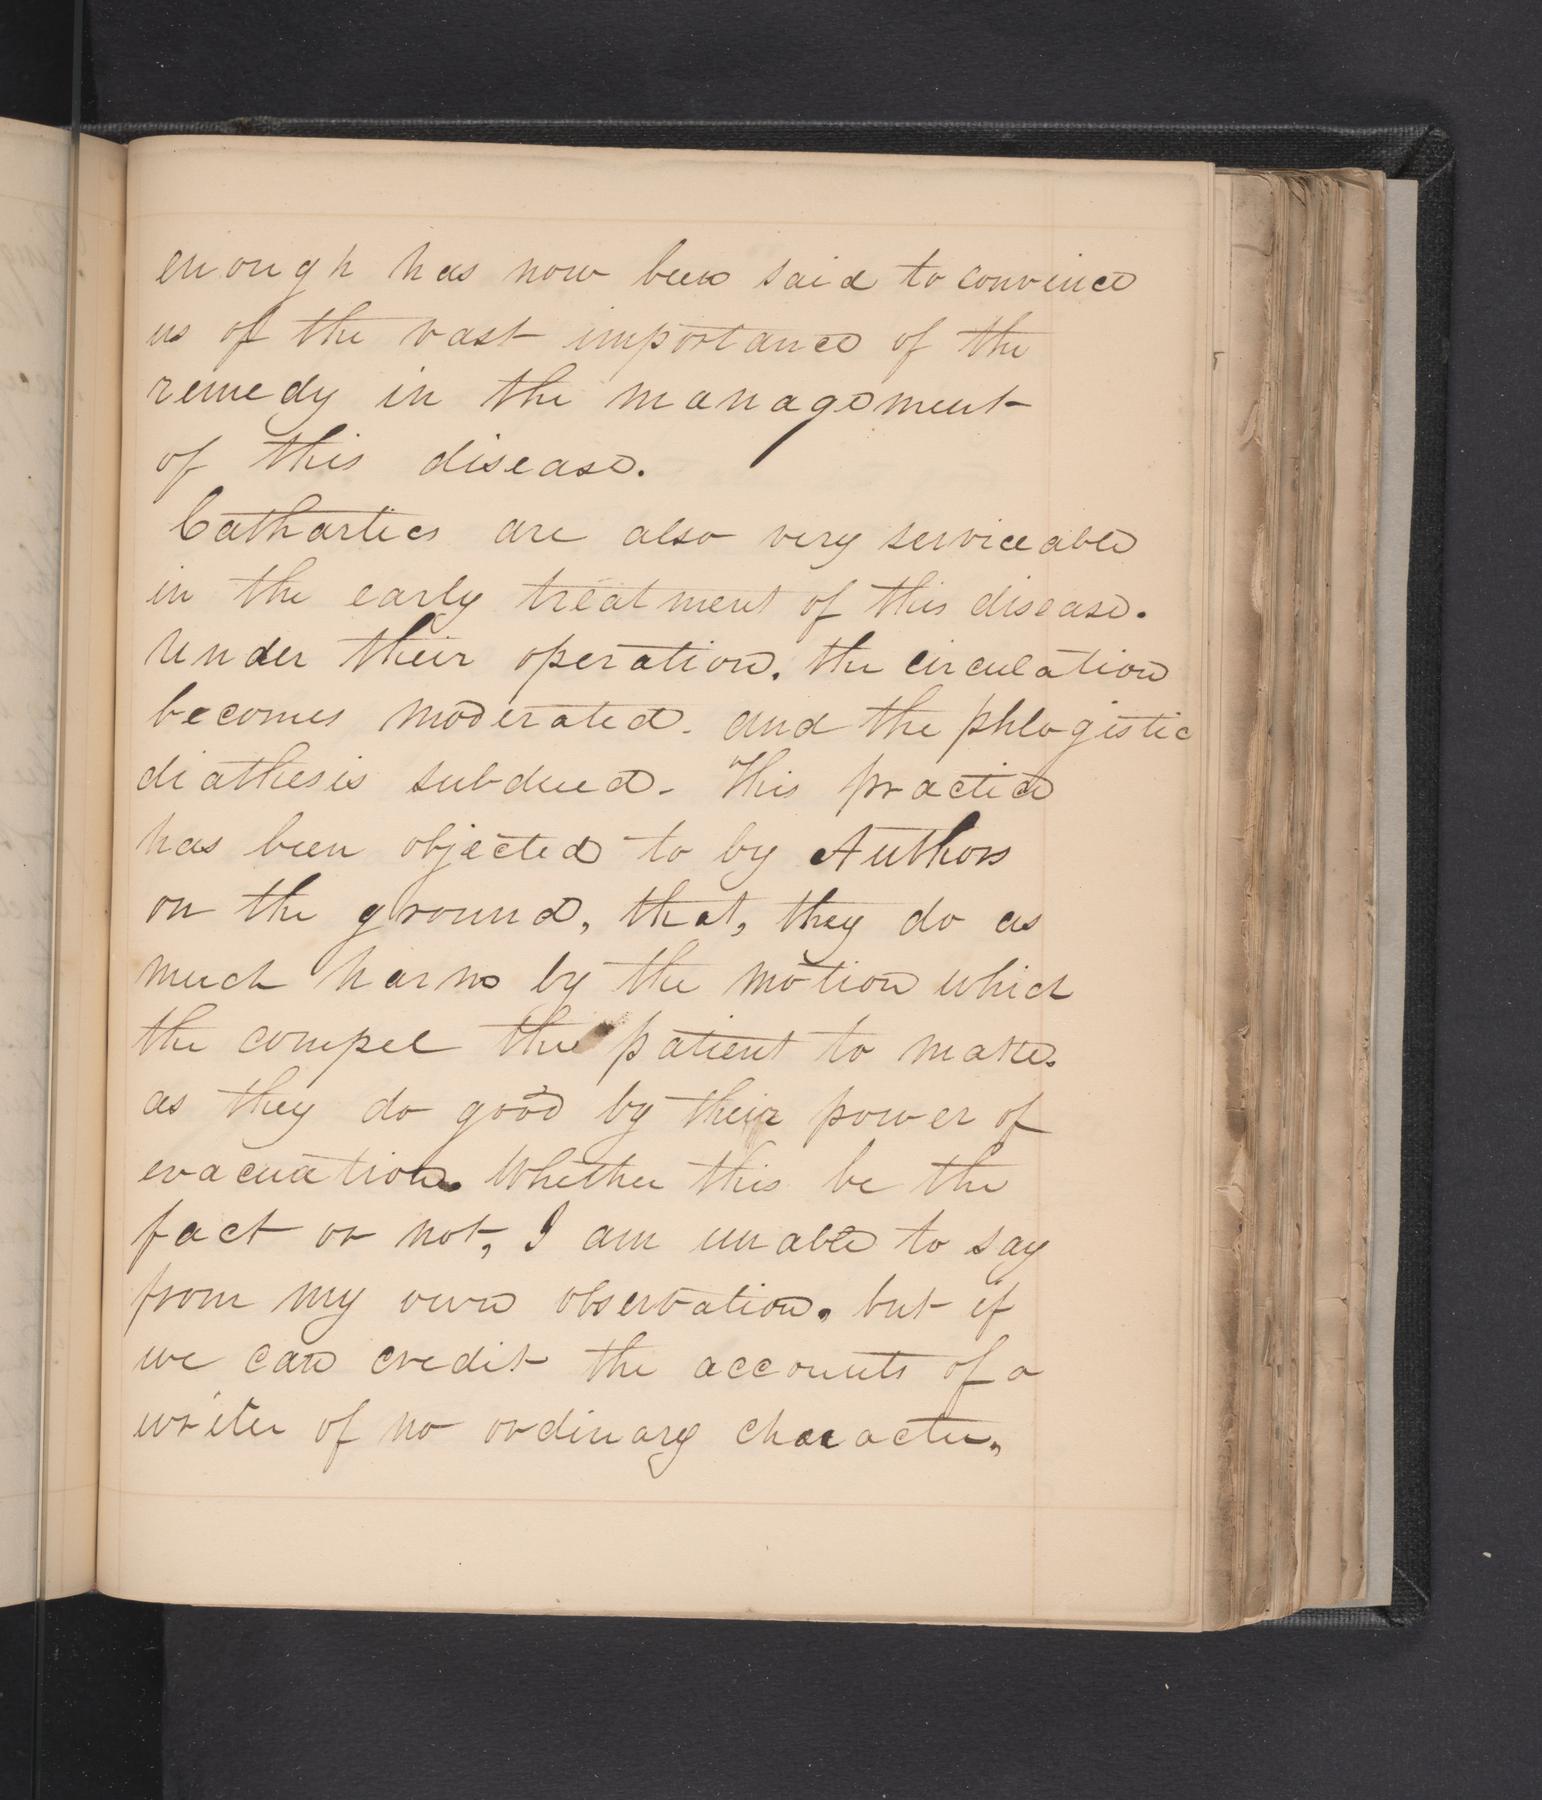 enough has now been said to convince
us of the vast importance of the
remedy in the management
of this disease.
Cathartics are also very serviceable
in the early treatment of this disease.
Under their operation. the circulation
becomes moderated. and the phlogistic
diathesis subdued. This practice
has been objected to by Authors
on the ground, that, they do as
much harm by the motion which
the compel the patient to make.
as they do good by their power of
evacuation. Whether this be the
fact or not, I am unable to say
from my own observation. but if
we can credit the accounts of a
writer of no ordinary character,